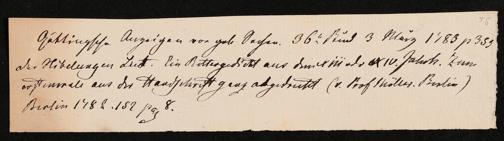 Göttingische Anzeigen von gel. Sachen. 36s Stück 3 März 1783 p 353
der Nibelungen Liet. Ein Rittergedicht aus dem XIII oder XIV. Jahrh. Zum
erstenmale aus der Handschrift ganz abgedruckt (v. Prof Müller. Berlin)
Berlin 1782. 152 pag 8.